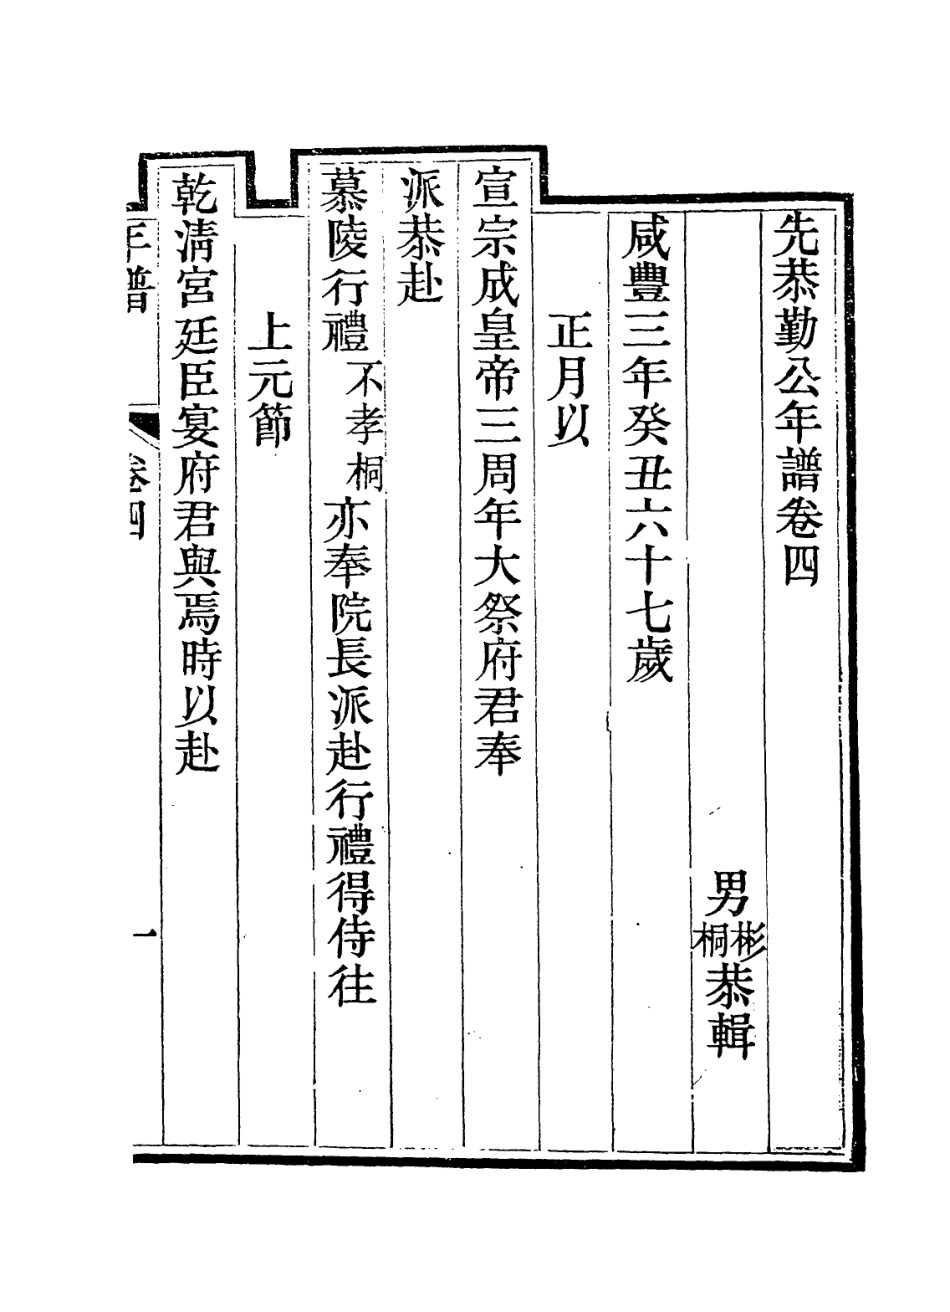 先恭勤公年譜卷四
男彬桐恭輯
咸豐三年癸丑六十七歲
正月以
宣宗成皇帝三周年大祭府君奉
派恭赴
慕陵行禮不孝桐亦奉院長派赴行禮得侍往
上元節
乾清宮廷臣宴府君與焉時以赴
年譜 卷四 一